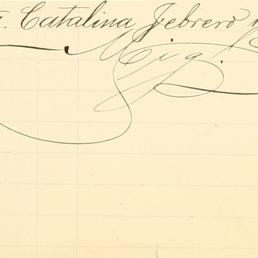 Catalina Febrero
Mig.